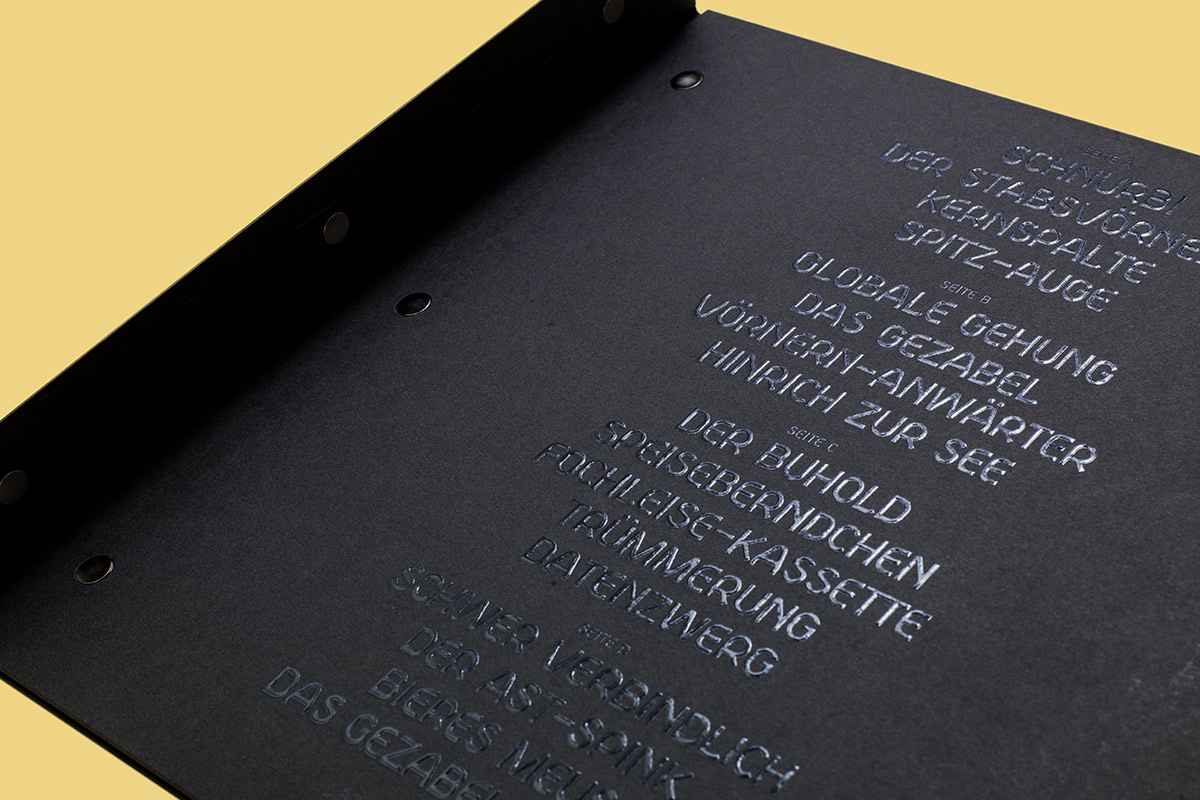 SEITE A
SCHNURBI
DER STABSVÖRNE
KERNSPALTE
SPITZ-AUGE
SEITE B
GLOBALE GEHUNG
DAS GEZABEL
VÖRNERN-ANWÄRTER
HINRICH ZUR SEE
SEITE C
DER BUHOLD
SPEISEBERNDCHEN
FOCHLEISE-KASSETTE
TRÜMMERUNG
DATENZWERG
SEITE D
SCHWER VERBINDLICH
DER AST-SPINK
BIERES MEUS
DAS GEZABEL